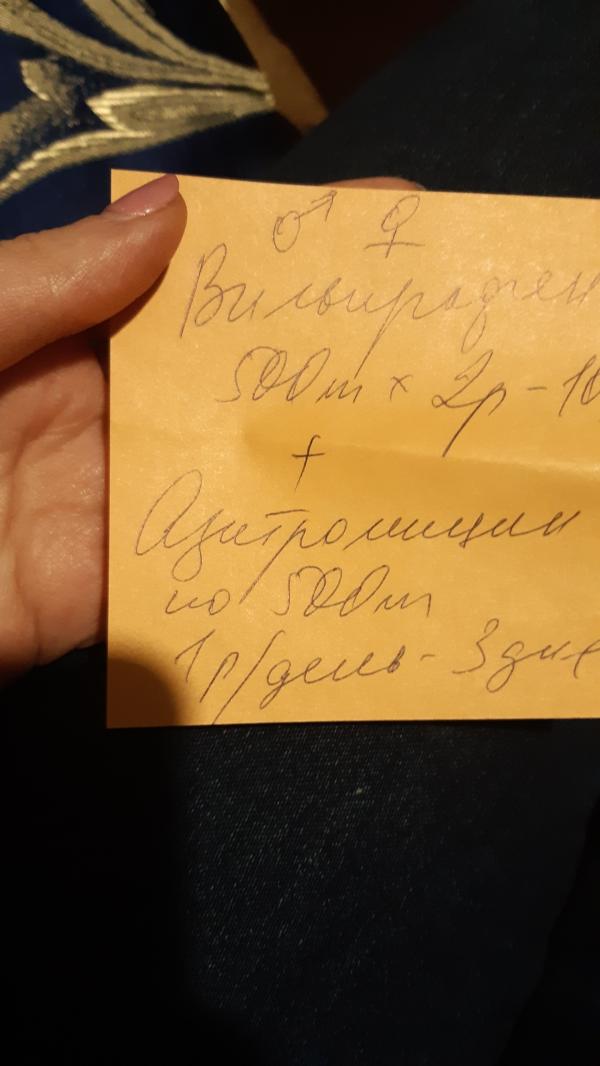 ♂ ♀
Вильпрафен
500 m x 2р - 10
+
Азитромицин
по 500 m
1 р/день - 3 дня